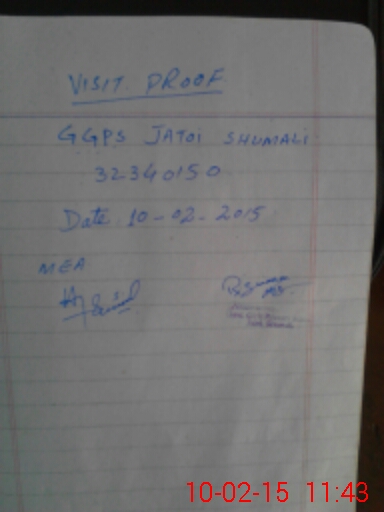 VISIT PROOF
GGPS JATOI SHUMALI
32340150
Date 10-02-2015
MEA
10-02-15 11:43